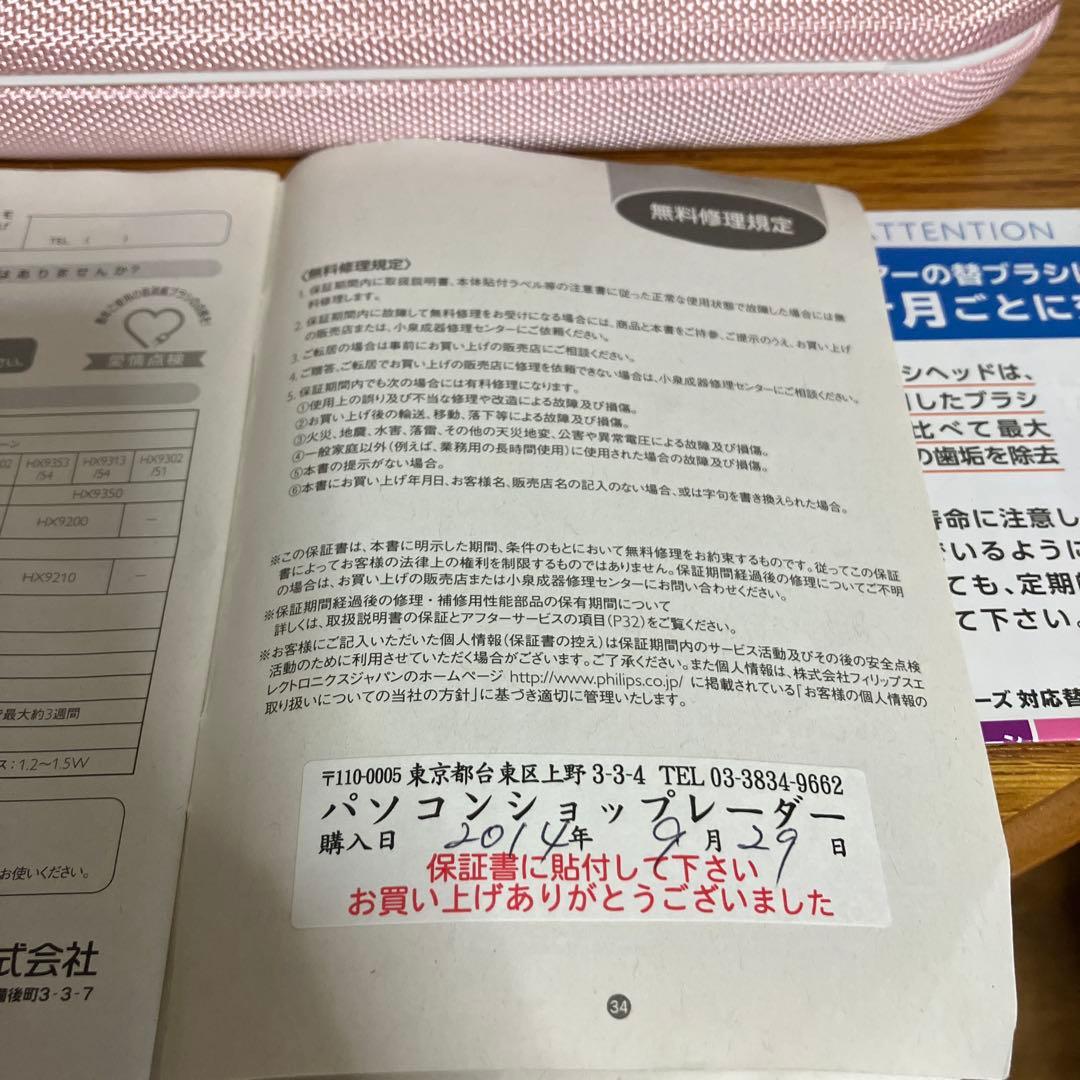 TEL ( )
はありませんか?
愛情点検
さい。
HX9353
/54
HX9313
/54
HX9302
/51
HX9350
HX9200
－
HX9210
－
最大約3週間
ス：1.2～1.5W
お使いください。
式会社
備後町3-3-7
無料修理規定
〈無料修理規定〉
1. 保証期間内に取扱説明書、本体貼付ラベル等の注意書に従った正常な使用状態で故障した場合には無
料修理します。
2. 保証期間内に故障して無料修理をお受けになる場合には、商品と本書をご持参、ご提示のうえ、お買い上げ
の販売店または、小泉成器修理センターにご依頼ください。
3. ご転居の場合は事前にお買い上げの販売店にご相談ください。
4. ご贈答、ご転居でお買い上げの販売店に修理を依頼できない場合は、小泉成器修理センターにご相談ください。
5. 保証期間内でも次の場合には有料修理になります。
①使用上の誤り及び不当な修理や改造による故障及び損傷。
②お買い上げ後の輸送、移動、落下等による故障及び損傷。
③火災、地震、水害、落雷、その他の天災地変、公害や異常電圧による故障及び損傷。
④一般家庭以外(例えば、業務用の長時間使用)に使用された場合の故障及び損傷。
⑤本書の提示がない場合。
⑥本書にお買い上げ年月日、お客様名、販売店名の記入のない場合、或は字句を書き換えられた場合。
※この保証書は、本書に明示した期間、条件のもとにおいて無料修理をお約束するものです。従ってこの保証
書によってお客様の法律上の権利を制限するものではありません。保証期間経過後の修理についてご不明
の場合は、お買い上げの販売店または小泉成器修理センターにお問い合わせください。
※保証期間経過後の修理・補修用性能部品の保有期間について
詳しくは、取扱説明書の保証とアフターサービスの項目(P32)をご覧ください。
※お客様にご記入いただいた個人情報(保証書の控え)は保証期間内のサービス活動及びその後の安全点検
活動のために利用させていただく場合がございます。ご了承ください。また個人情報は、株式会社フィリップスエ
レクトロニクスジャパンのホームページ http://www.philips.co.jp/ に掲載されている「お客様の個人情報の
取り扱いについての当社の方針」に基づき適切に管理いたします。
〒110-0005 東京都台東区上野 3-3-4 TEL 03-3834-9662
パソコンショップレーダー
購入日 2014年 9月 29日
保証書に貼付して下さい
お買い上げありがとうございました
34
ATTENTION
アーの替ブラシは
ヶ月ごとに
シヘッドは、
したブラシ
比べて最大
の歯垢を除去
寿命に注意し
でいるように
ても、定期
て下さい。
ーズ 対応替